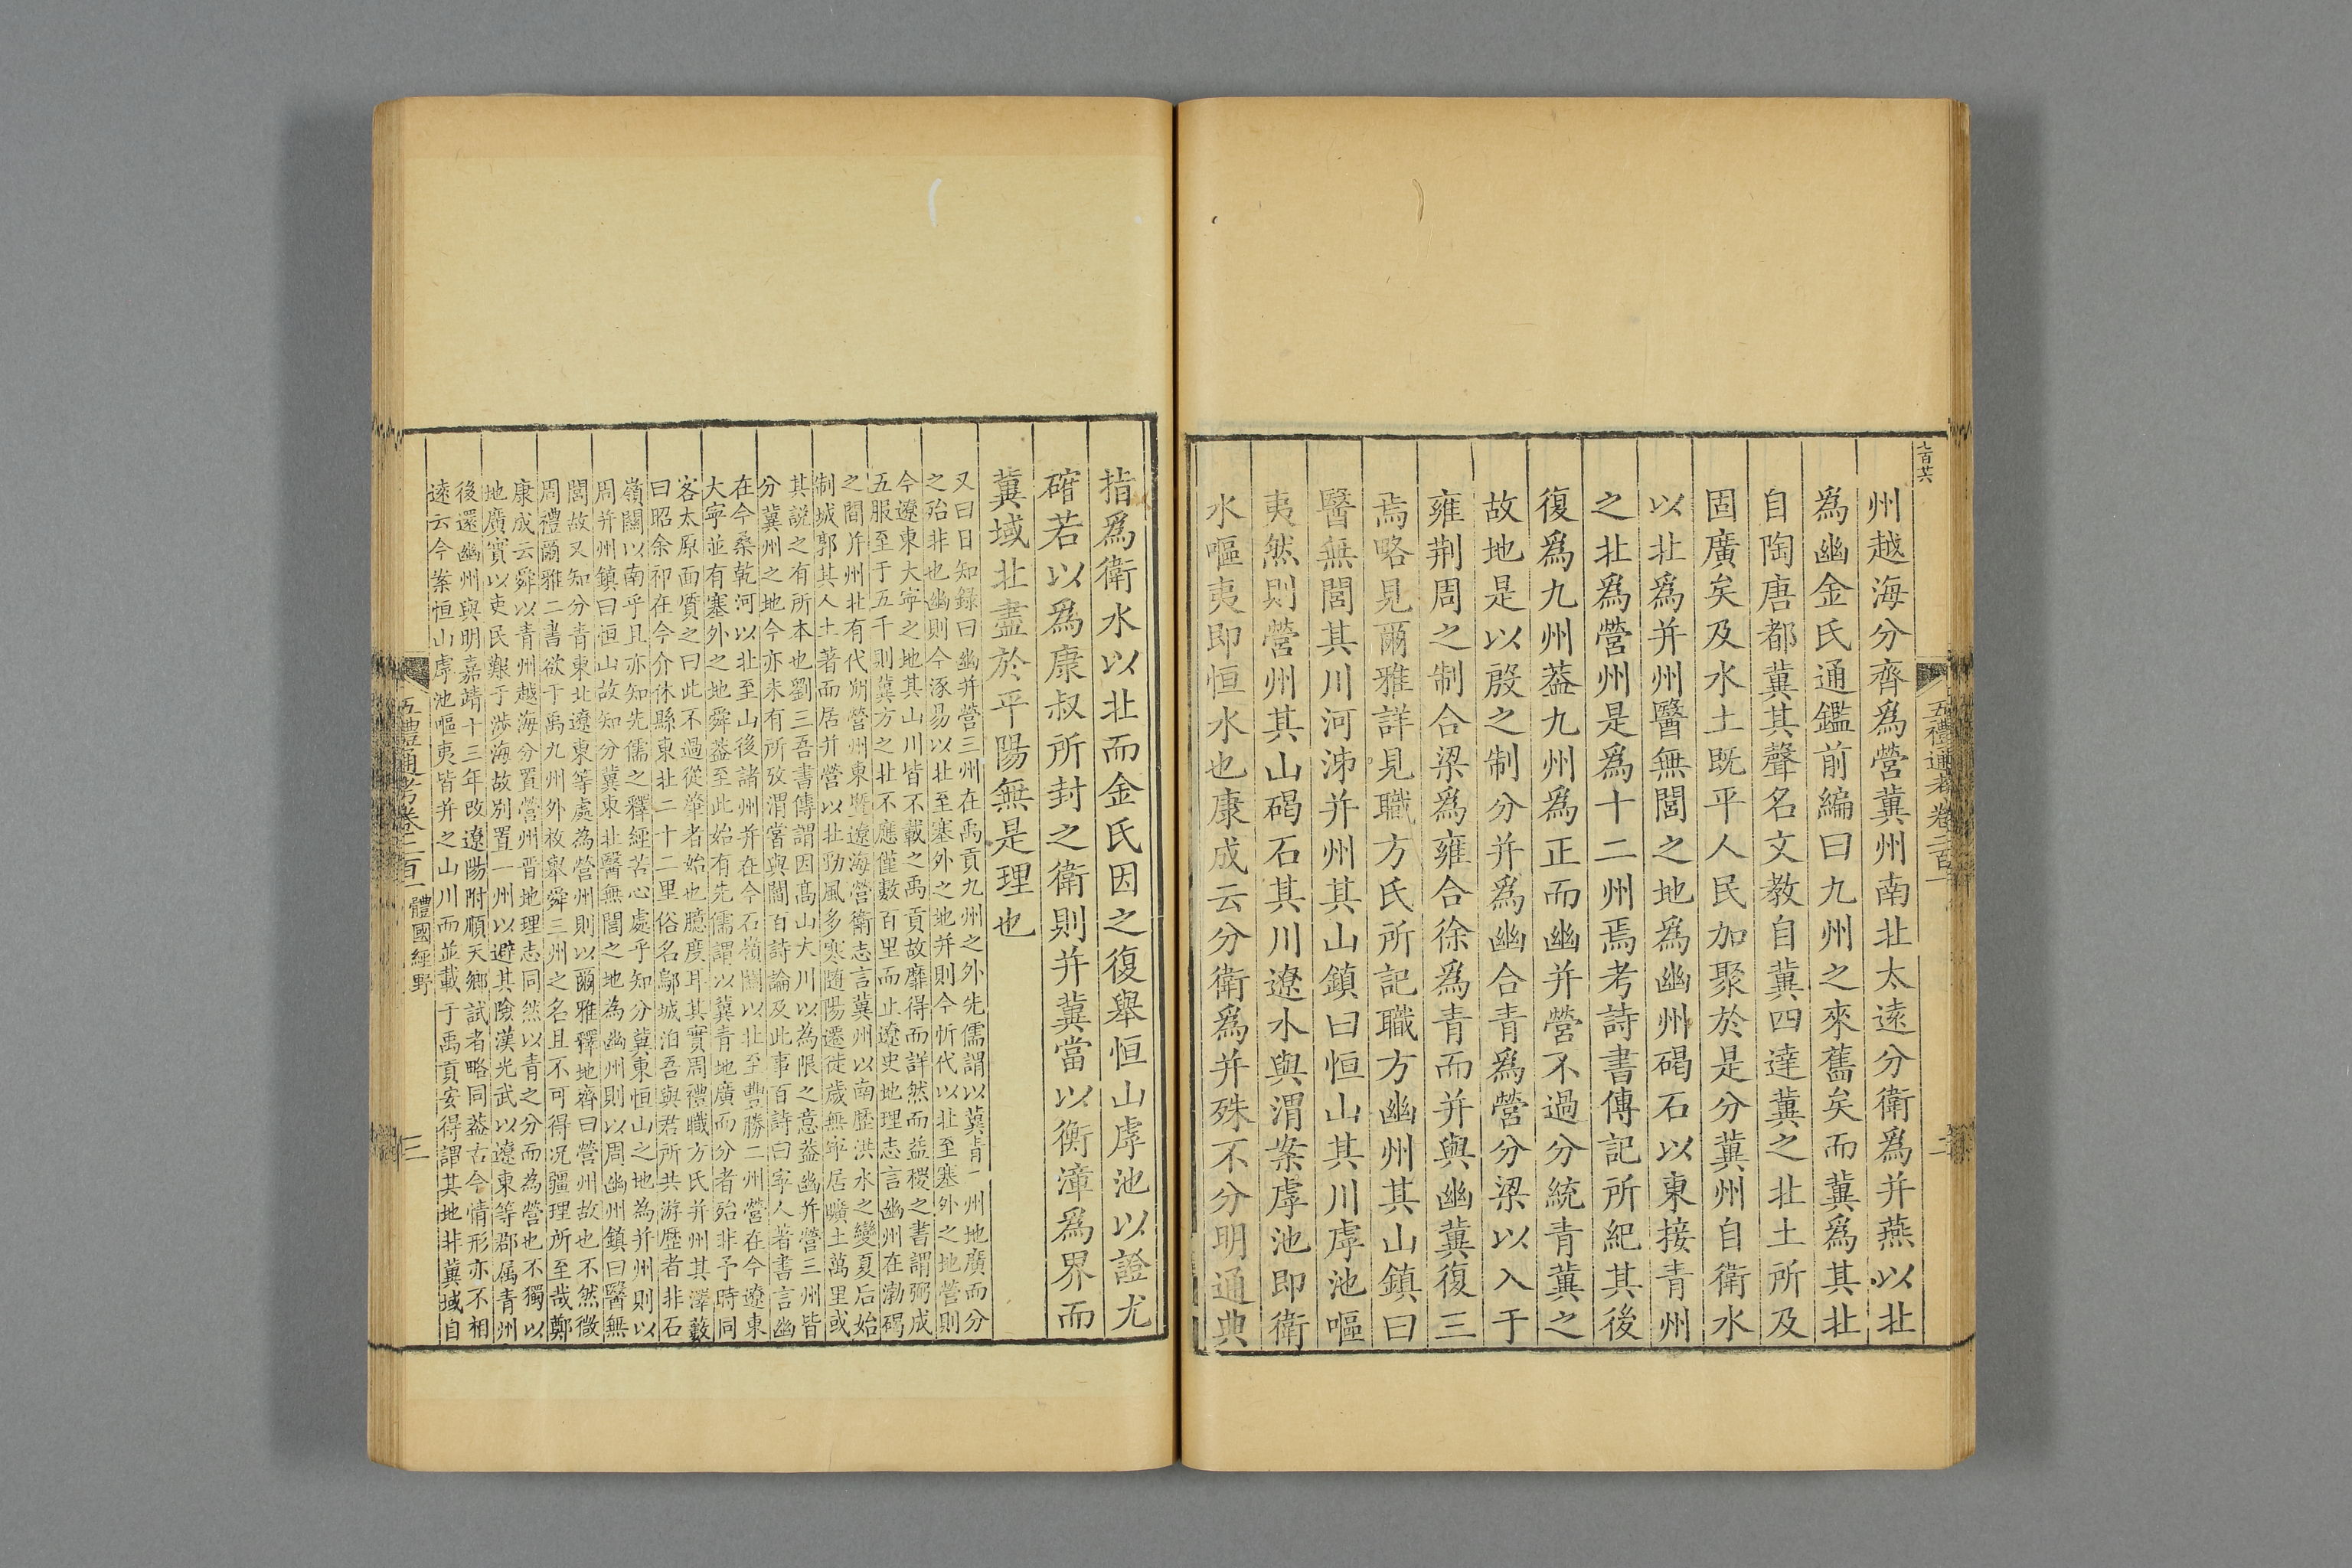 七百廿
五禮通考卷二百一
二
州越海分齊爲營冀州南北太遠分衛爲并燕以北
爲幽金氏通鑑前編曰九州之來舊矣而冀爲其北
自陶唐都冀其聲名文教自冀四達冀之北土所及
固廣矣及水土既平人民加聚於是分冀州自衛水
以北爲并州醫無閭之地爲幽州碣石以東接青州
之北爲營州是爲十二州焉考詩書傳記所紀其後
復爲九州葢九州爲正而幽并營不過分統青冀之
故地是以殷之制分并爲幽合青爲營分梁以入于
雍荆周之制合梁爲雍合徐爲青而并與幽冀復三
焉略見爾雅詳見職方氏所記職方幽州其山鎮曰
醫無閭其川河泲并州其山鎮曰恒山其川虖池嘔
夷然則營州其山碣石其川遼水與渭案虖池即衛
水嘔夷即恒水也康成云分衛爲并殊不分明通典
指爲衛水以北而金氏因之復舉恒山虖池以證尤
確若以爲康叔所封之衛則并冀當以衡漳爲界而
冀域北盡於平陽無是理也
又曰日知錄曰幽并營三州在禹貢九州之外先儒謂以冀青一州地廣而分
之殆非也幽則今涿易以北至塞外之地并則今忻代以北至塞外之地營則
今遼東大寧之地其山川皆不載之禹貢故靡得而詳然而益稷之書謂弼成
五服至于五千則冀方之北不應僅數百里而止遼史地理志言幽州在渤碣
之間并州北有代朔營州東暨遼海營衛志言冀州以南歷洪水之變夏后始
制城郭其人土著而居并營以北勁風多寒隨陽遷徙歲無寧居曠土萬里或
其說之有所本也劉三吾書傳謂因高山大川以為限之意葢幽并營三州皆
分冀州之地今亦未有所攷渭嘗與閻百詩論及此事百詩曰寧人著書言幽
在今桑乾河以北至山後諸州并在今石嶺關以北至豐勝二州營在今遼東
大寧並有塞外之地舜葢至此始有先儒謂以冀青地廣而分者殆非予時同
客太原面質之曰此不過從肇者始也臆度耳其實周禮職方氏并州其澤藪
曰昭余祁在今介休縣東北二十二里俗名鄔城泊吾與君所共游歷者非石
嶺關以南乎且亦知先儒之釋經苦心處乎知分冀東恒山之地為并州則以
周并州鎮曰恒山故知分冀東北醫無閭之地為幽州則以周幽州鎮曰醫無
閭故又知分青東北遼東等處為營州則以爾雅釋地齊曰營州故也不然微
周禮爾雅二書欲于禹九州外枚舉舜三州之名且不可得况疆理所至哉鄭
康成云舜以青州越海分置營州晋地理志同然以青之分而為營也不獨以
地廣實以吏民艱于涉海故別置一州以避其險漢光武以遼東等郡属青州
後還幽州與明嘉靖十三年改遼陽附順天鄉試者略同葢古今情形亦不相
遠云今案恒山虖池嘔夷皆并之山川而並載于禹貢安得謂其地非冀域自
五禮通考卷二百一 體國經野
三